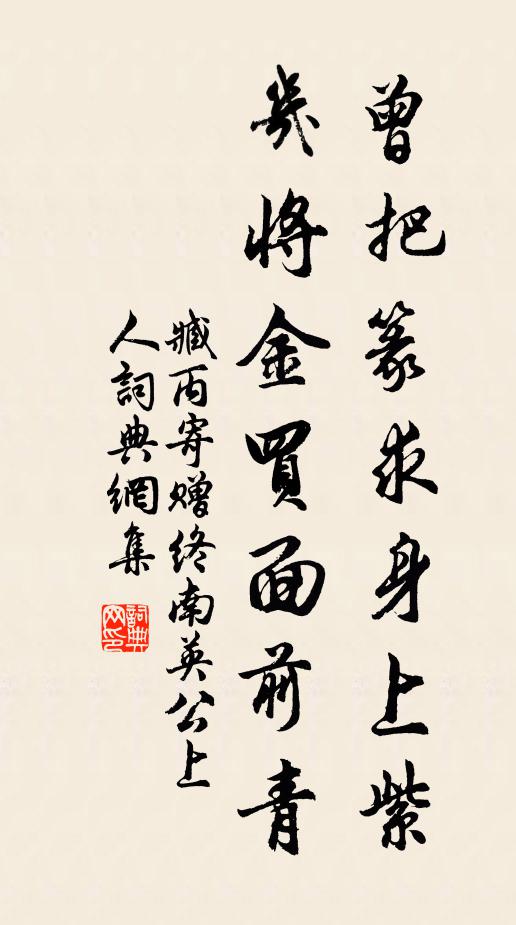 曾把篆求身上紫
幾將金買面前青
臧丙寄贈終南英公上
人詞典網集
詞典
网印